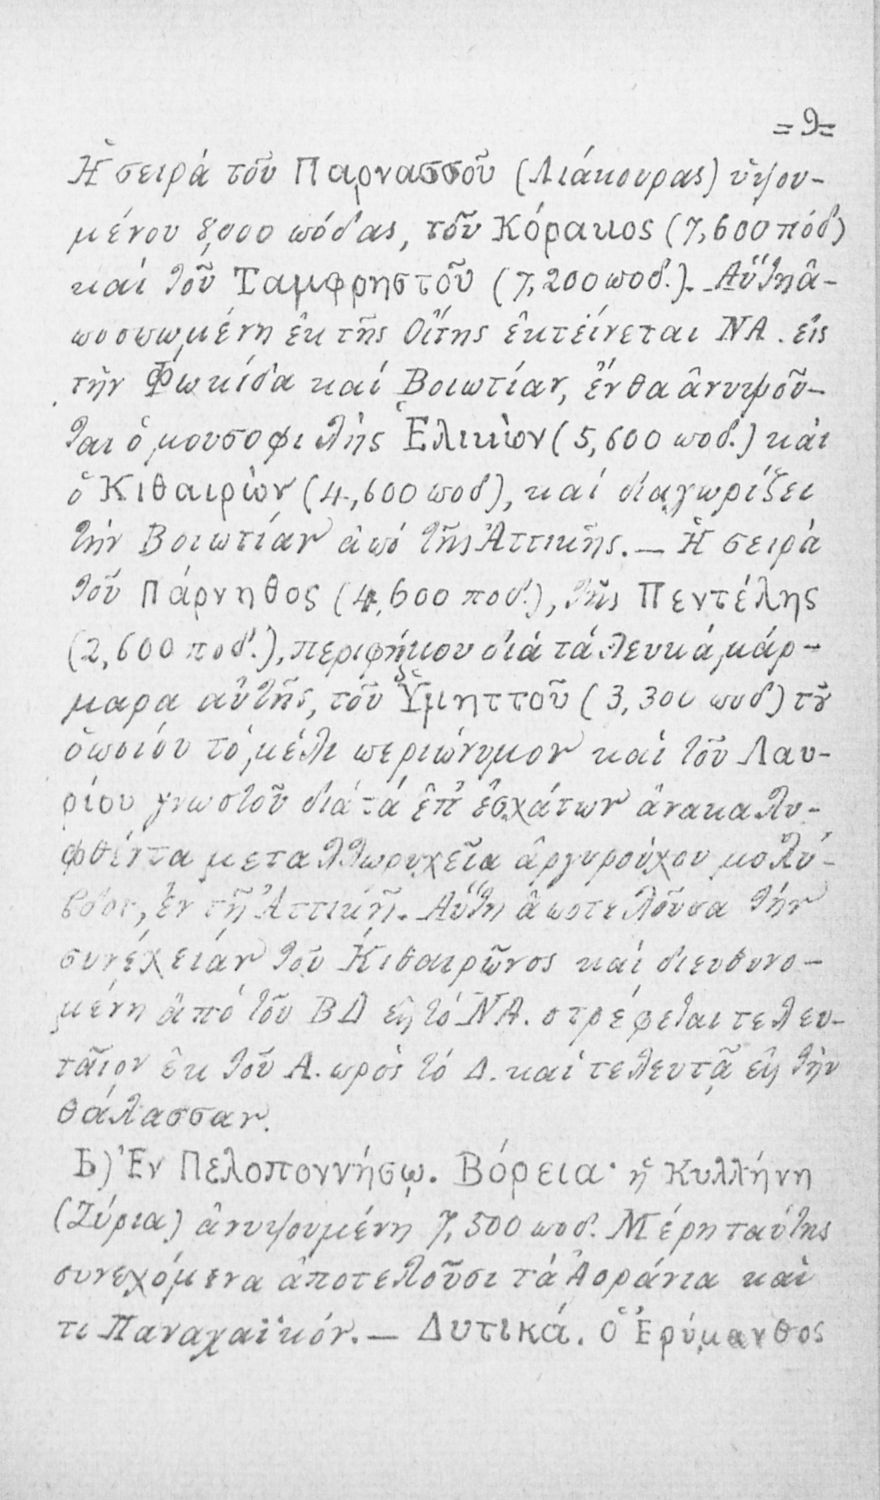 =9=
Ἡ σειρά τοῦ Παρνασσοῦ (Λιάκουρας) ὑψου-
μένου 8,000 πόδας, τοῦ Κόρακος (7,600 πόδ)
καί τοῦ Ταμφρηστοῦ (7,200 ποδ.). Αὕτη ἀ-
ποσπωμένη ἐκ τῆς Οἴτης ἐκτείνεται ΝΑ. εἰς
τὴν Φωκίδα καί Βοιωτίαν, ἔνθα ἀνυψοῦ-
ται ὁ μουσοφιλὴς Ἑλικὼν (5,600 ποδ.) καὶ
ὁ Κιθαιρὼν (4,600 ποδ), καί διαχωρίζει
τήν Βοιωτίαν ἀπό τῆς Ἀττικῆς. — Ἡ σειρά
τοῦ Πάρνηθος (4,600 ποδ.), τῆς Πεντέλης
(2,600 ποδ.), περιφήμου διά τά λευκά μάρ-
μαρα αὐτῆς, τοῦ Ὑμηττοῦ (3,300 ποδ) τοῦ
ὁποίου τό μέλι περιώνυμον καί τοῦ Λαυ-
ρίου γνωστοῦ διά τά ἐπ' ἐσχάτων ἀνακαλυ-
φθέντα μεταλλωρυχεῖα ἀργυρούχου μολύ-
βδου, ἐν τῇ Ἀττικῇ. Αὕτη ἀποτελοῦσα τήν
συνέχειάν τοῦ Κιθαιρῶνος καί διευθυνο-
μένη ἀπό τοῦ ΒΔ εἰς τό ΝΑ. στρέφεται τελευ-
ταῖον ἐκ τοῦ Α. πρὸς τό Δ. καί τελευτᾷ εἰς τὴν
θάλασσαν.
Β) Ἐν Πελοποννήσῳ. Βόρεια· ἡ Κυλλήνη
(Ζύρια) ἀνυψουμένη 7,500 ποδ. Μέρη ταύτης
συνεχόμενα ἀποτελοῦσι τά Ἀοράνια καὶ
τι Παναχαϊκόν. — Δυτικά. Ὁ Ἐρύμανθος